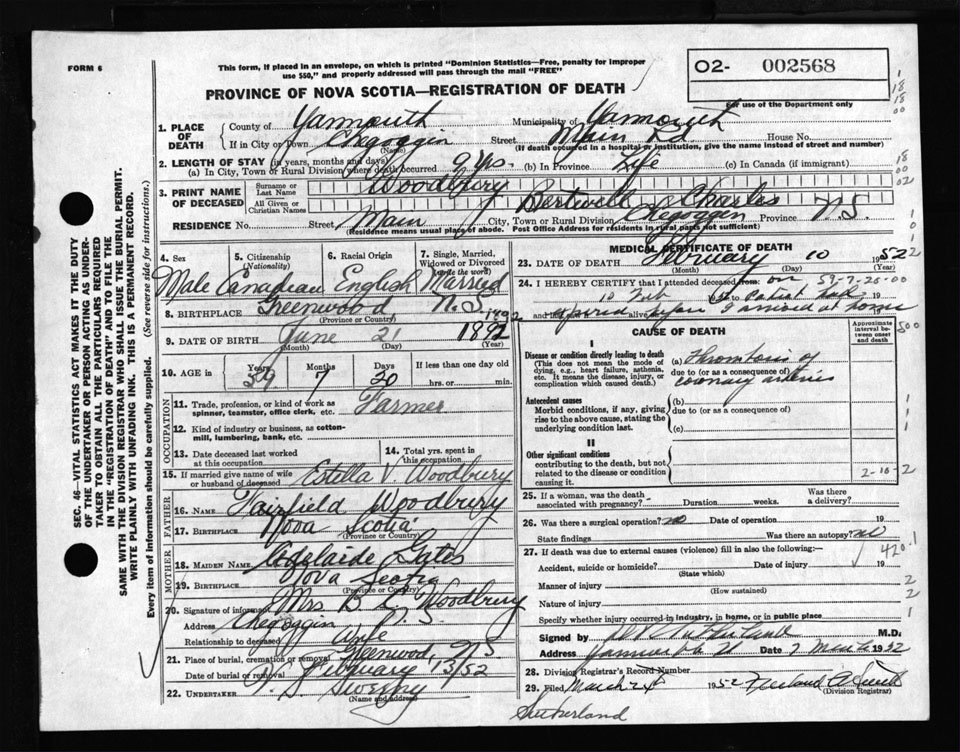 FORM 6
This form, if placed in an envelope, on which is printed "Dominion Statistics—Free, penalty for improper
use $50," and properly addressed will pass through the mail "FREE"
O2- 002568
PROVINCE OF NOVA SCOTIA—REGISTRATION OF DEATH
For use of the Department only
1. PLACE OF DEATH
County of Yarmouth Municipality of Yarmouth
If in City or Town Chegoggin Street Main Rd House No.
(Name) (If death occurred in a hospital or institution, give the name instead of street and number)
2. LENGTH OF STAY (in years, months and days)
(a) In City, Town or Rural Division where death occurred 9 yrs. (b) In Province Life (c) In Canada (if immigrant)
3. PRINT NAME OF DECEASED
Surname or Last Name Woodbury
All Given or Christian Names Bertwell Charles
RESIDENCE No. Street Main City, Town or Rural Division Chegoggin Province N.S.
(Residence means usual place of abode. Post Office Address for residents in rural parts not sufficient)
4. Sex Male
5. Citizenship (Nationality) Canadian
6. Racial Origin English
7. Single, Married, Widowed or Divorced (write the word) Married
8. BIRTHPLACE Greenwood N.S.
(Province or Country)
1892
9. DATE OF BIRTH June 21 1892
(Month) (Day) (Year)
10. AGE in Years 59 Months 7 Days 20 If less than one day hrs. or min.
OCCUPATION
11. Trade, profession, or kind of work as spinner, teamster, office clerk, etc. Farmer
12. Kind of industry or business, as cotton-mill, lumbering, bank, etc.
13. Date deceased last worked at this occupation
14. Total yrs. spent in this occupation
15. If married give name of wife or husband of deceased Estella V Woodbury
FATHER
16. NAME Fairfield Woodbury
17. BIRTHPLACE Nova Scotia
(Province or Country)
MOTHER
18. MAIDEN NAME Adelaide Gates
19. BIRTHPLACE Nova Scotia
(Province or Country)
20. Signature of informant Mrs B C Woodbury
Address Chegoggin N.S.
Relationship to deceased Wife
21. Place of burial, cremation or removal Greenwood, N.S
Date of burial or removal February 13/52
22. UNDERTAKER Sweeny
(Name and address)
MEDICAL CERTIFICATE OF DEATH
23. DATE OF DEATH February 10 1952
(Month) (Day) (Year)
24. I HEREBY CERTIFY that I attended deceased from: on 59-7-20-00
10 Feb 19 to Patient had 19
and last saw alive before I arrived at house
CAUSE OF DEATH
Approximate interval between onset and death
I
Disease or condition directly leading to death
(This does not mean the mode of dying, e.g., heart failure, asthenia, etc. It means the disease, injury, or complication which caused death.)
(a) Thrombosis of
due to (or as a consequence of)
coronary arteries
Antecedent causes
Morbid conditions, if any, giving rise to the above cause, stating the underlying condition last.
(b)
due to (or as a consequence of)
(c)
II
Other significant conditions
contributing to the death, but not related to the disease or condition causing it.
2-10-2
25. If a woman, was the death associated with pregnancy? Duration weeks. Was there a delivery?
26. Was there surgical operation? no Date of operation 19
State findings Was there an autopsy? no
27. If death was due to external causes (violence) fill in also the following:—
420.1
Accident, suicide or homicide? Date of injury 19
(State which)
Manner of injury
(How sustained)
Nature of injury
Specify whether injury occurred in industry, in home, or in public place
Signed by M.D.
Address Yarmouth Date 1952
28. Division Registrar's Record Number
29. Filed March 24 1952
(Division Registrar)
Sutherland
SEC. 46—VITAL STATISTICS ACT MAKES IT THE DUTY
OF THE UNDERTAKER OR PERSON ACTING AS UNDER-
TAKER TO OBTAIN ALL THE PARTICULARS REQUIRED
IN THE "REGISTRATION OF DEATH" AND TO FILE THE
SAME WITH THE DIVISION REGISTRAR WHO SHALL ISSUE THE BURIAL PERMIT.
WRITE PLAINLY WITH UNFADING INK. THIS IS A PERMANENT RECORD.
Every item of information should be carefully supplied. (See reverse side for instructions.)